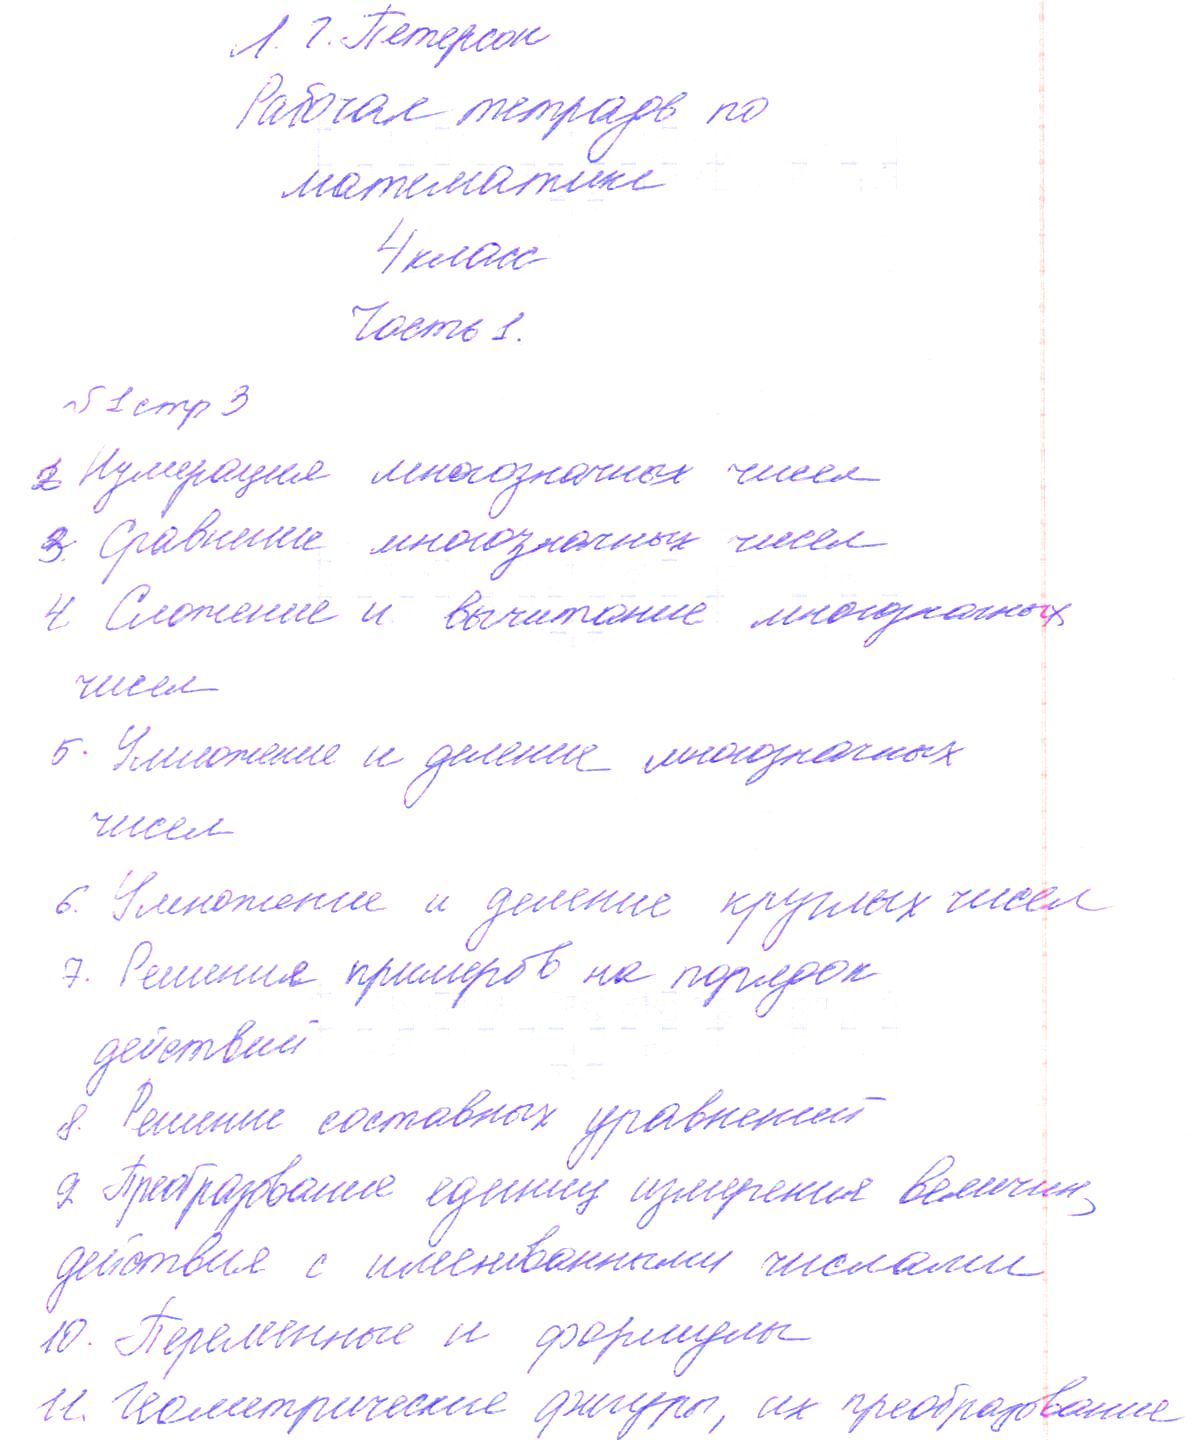 Л. Г. Петерсон
Рабочая тетрадь по
математике
4 класс
Часть 1.
№ 1 стр 3
2 Нумерация многозначных чисел
3. Сравнение многозначных чисел
4 Сложение и вычитание многозначных
чисел
5. Умножение и деление многозначных
чисел
6. Умножение и деление круглых чисел
7. Решения примеров на порядок
действий
8. Решение составных уравнений
9 Преобразование единиц измерения величин,
действия с именованными числами
10. Переменные и формулы
11. Геометрические фигуры, их преобразование